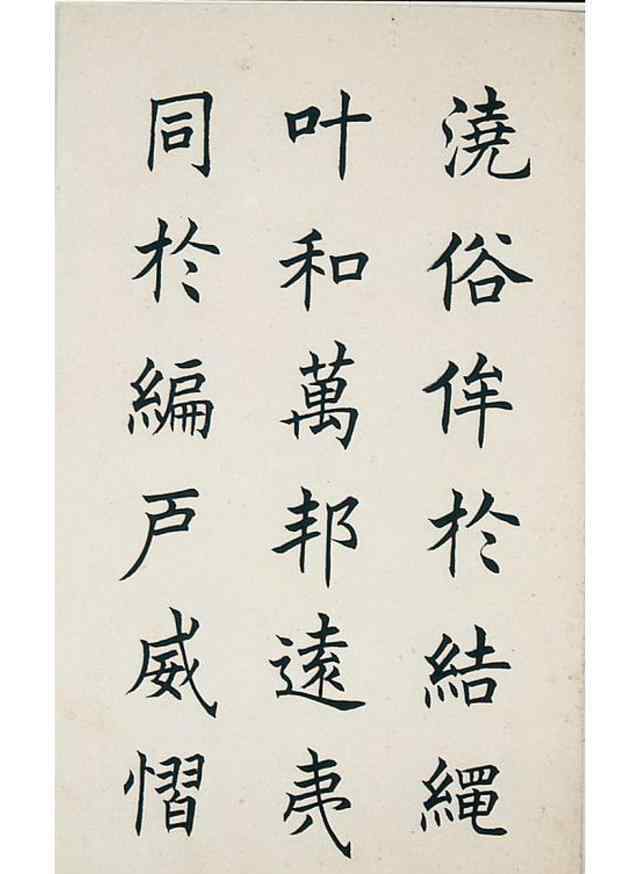 澆俗侔於結繩
叶和萬邦遠夷
同於編戶威慴